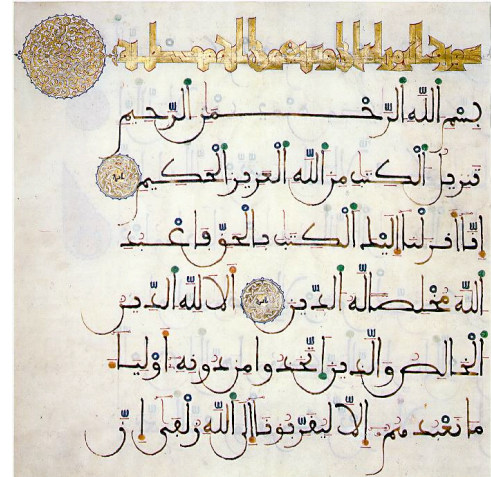 سورة
بسم الله الرحمن الرحيم
تنزيل الكتب من الله العزيز الحكيم
انا انزلنا اليك الكتب بالحق فاعبد
الله مخلصا له الدين الا لله الدين
الخالص والذين اتخذوا من دونه اولياء
ما نعبدهم الا ليقربونا الى الله زلفى ان